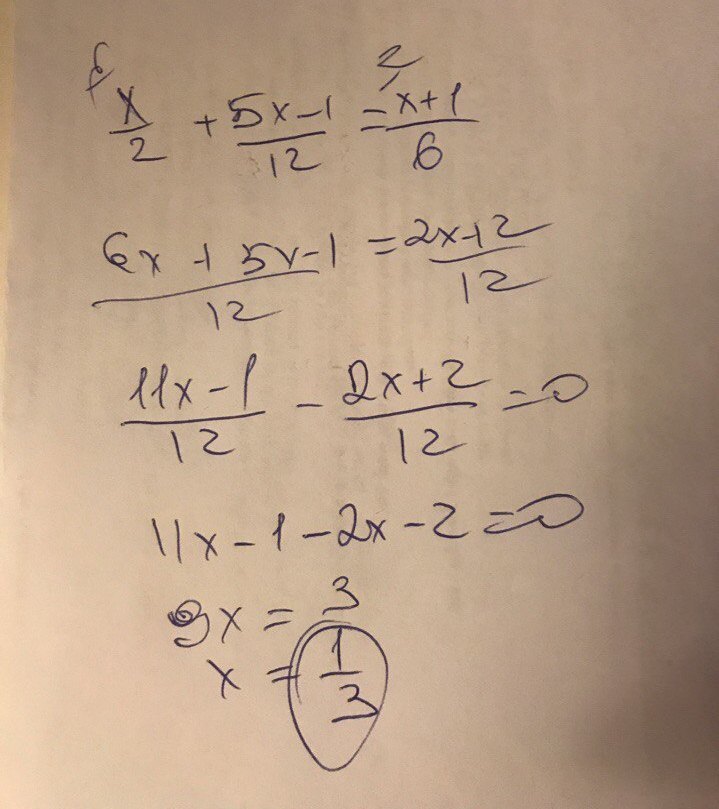 6 x/2 + 5x-1/12 = 2 x+1/6
6x + 5x-1/12 = 2x+2/12
11x-1/12 - 2x+2/12 = 0
11x-1-2x-2=0
9x = 3
x = 1/3